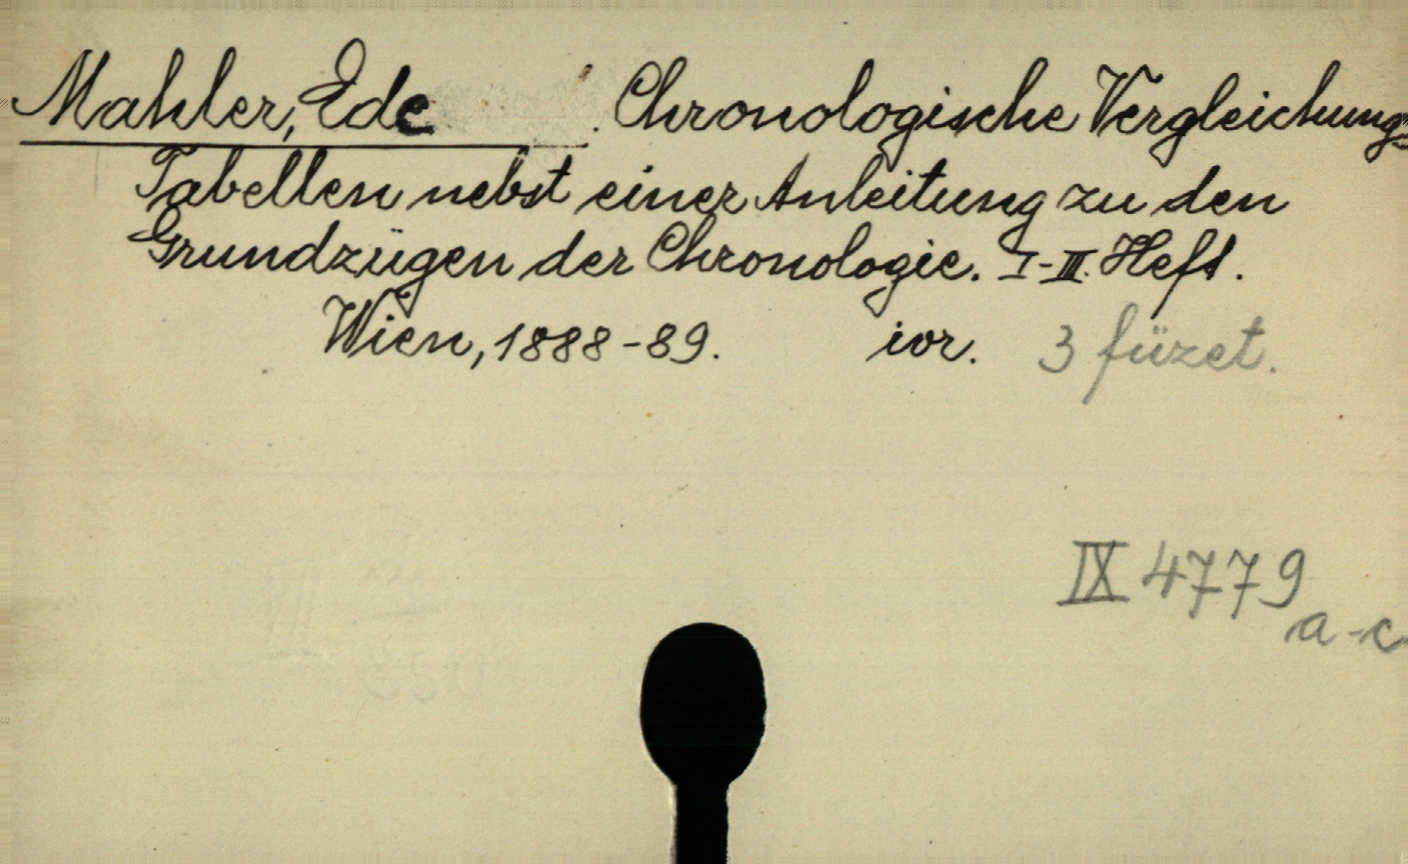 Mahler, Ede . Chronologische Vergleichungs
Tabellen nebst einer Anleitung zu den
Grundzügen der Chronologie. I-III. Heft.
Wien, 1888-89. ivr. 3 füzet.
IX 4779
a-c